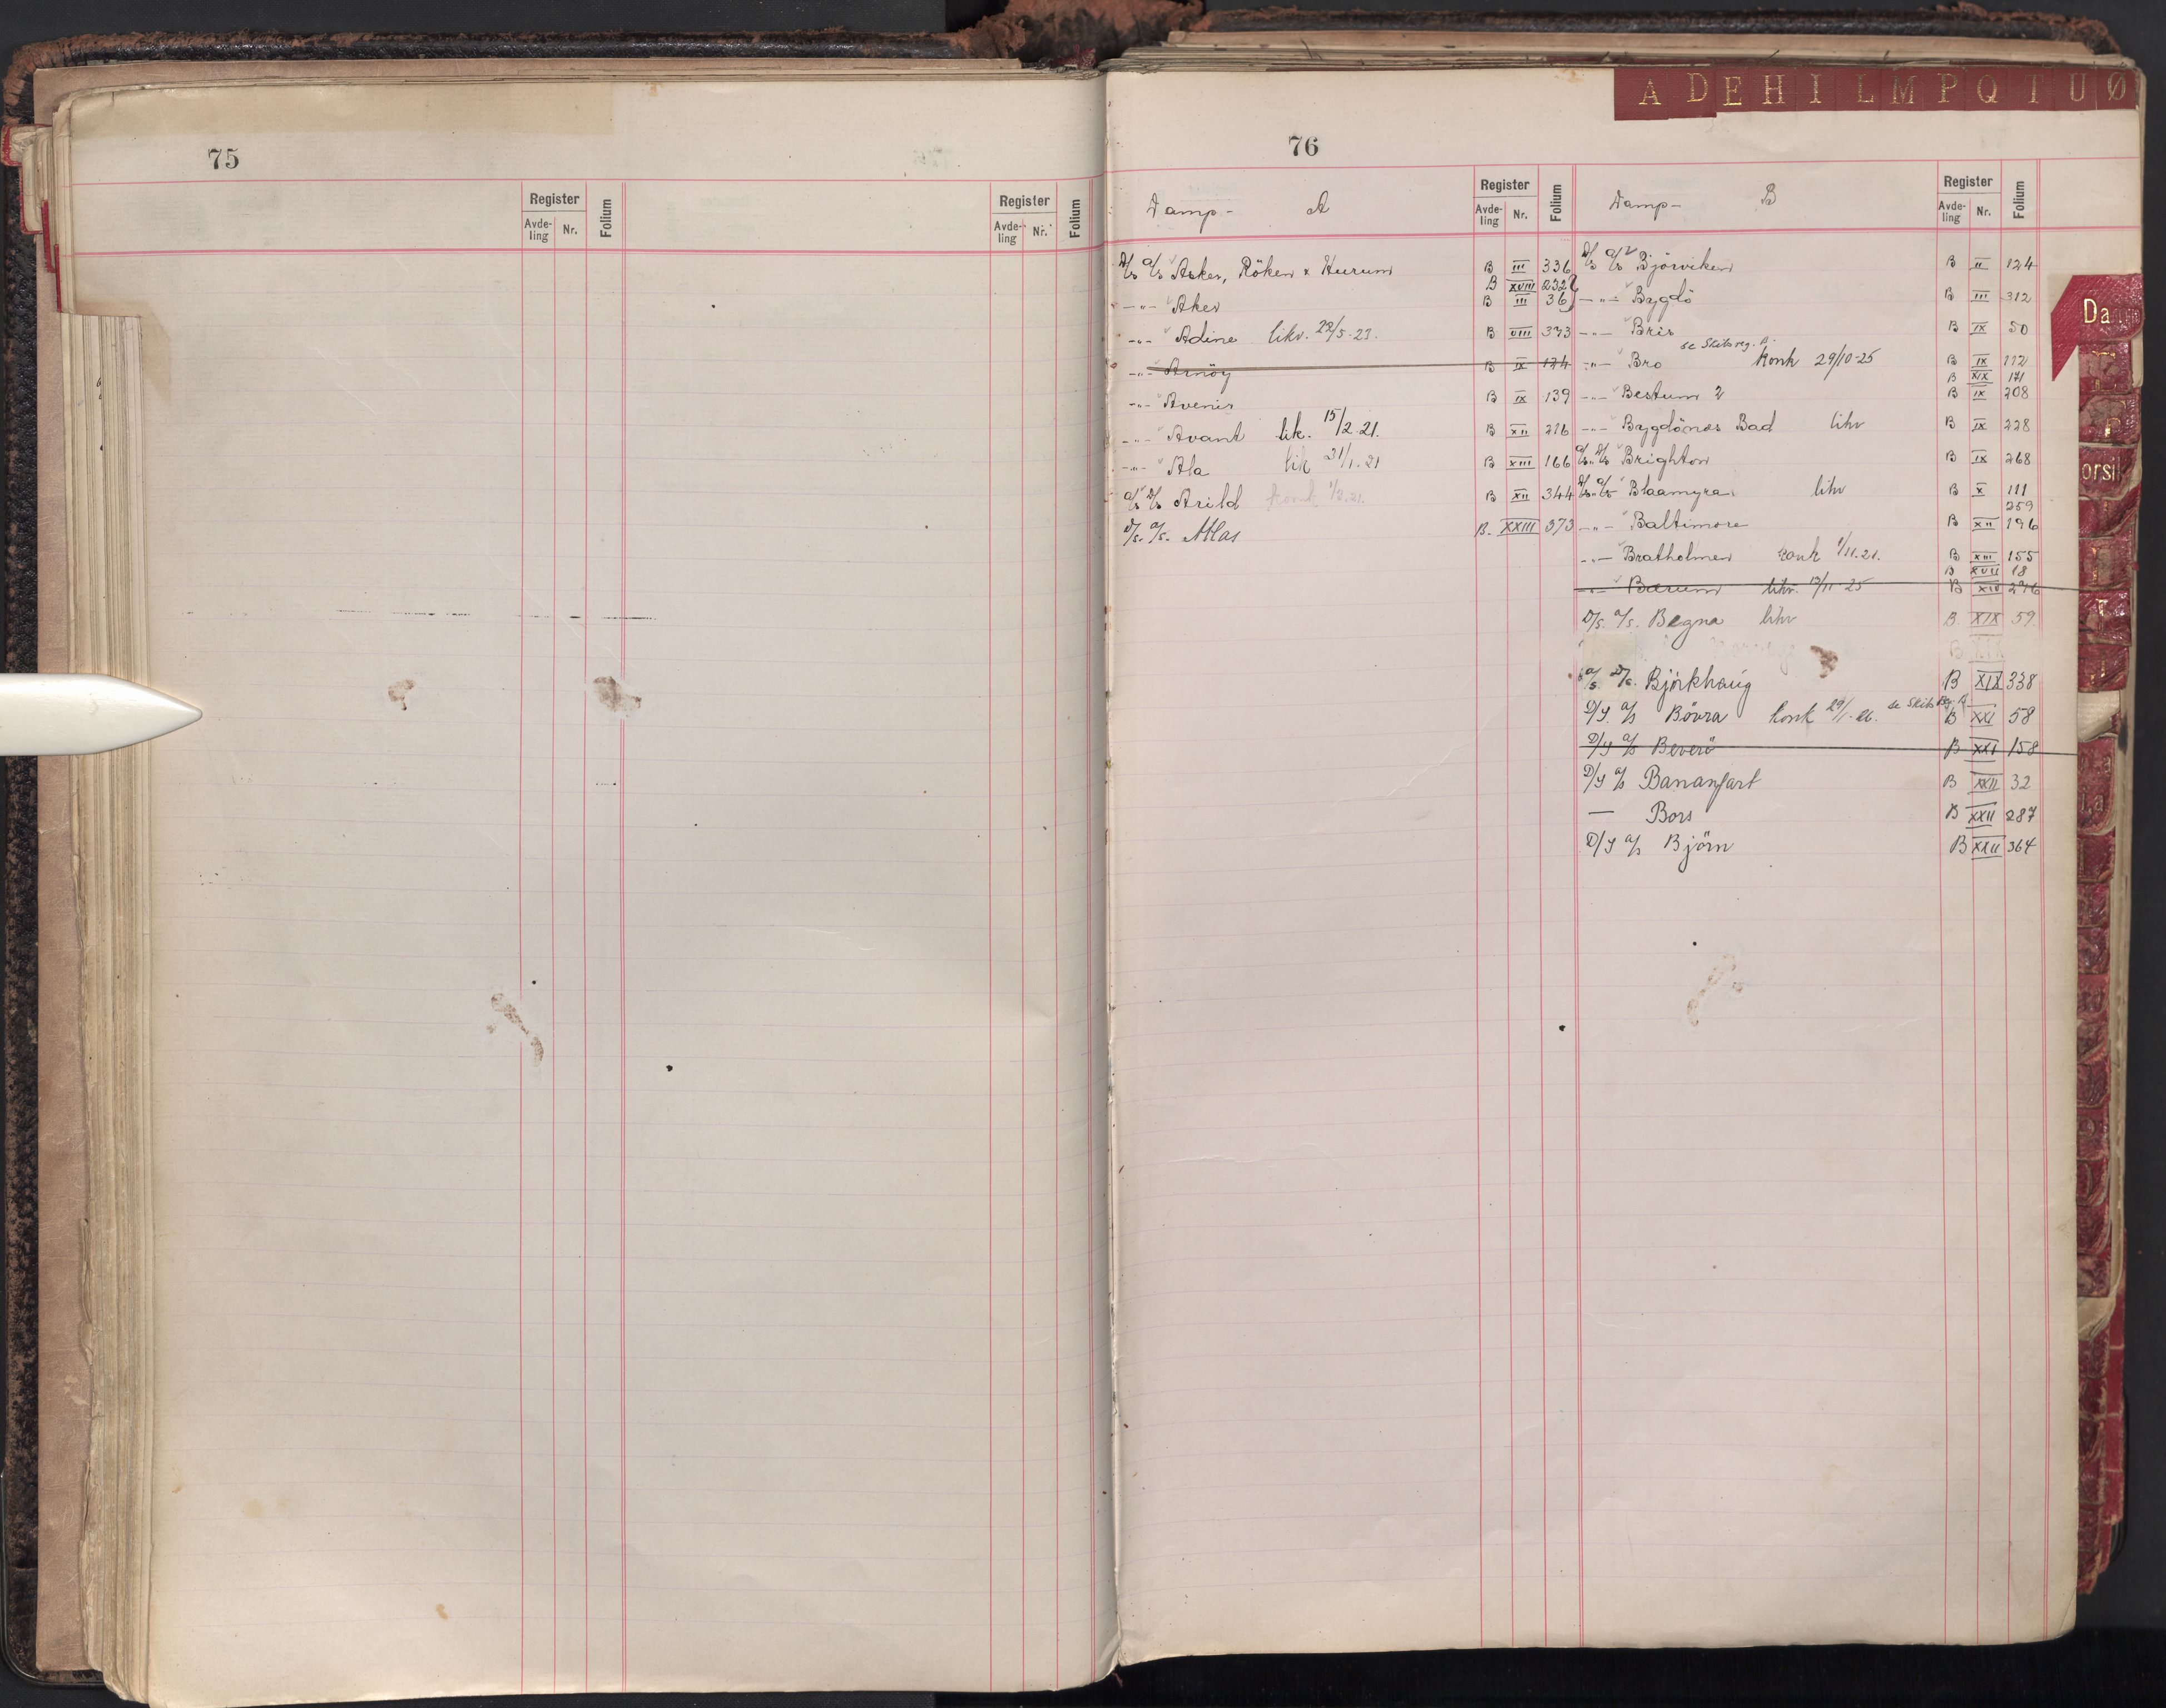 A D E H I L M P Q T U Ø
75
Register Folium Register Folium
Avde-ling Nr. Avde-ling Nr.
76
Damp- A Register Avde-ling Nr. Folium
D/s a/s Asker, Röken x Hurum B III 336
B XVIII 232
-"- Aker B III 36
-"- Adine likv. 22/5-23. B VIII 373
-"- Arnöy B IX 174
-"- Avenir B IX 139
-"- Avant lik. 15/2.21. B XII 216
-"- Ala lik 31/1.21 B XIII 166
a/s D/s Arild konk 1/3.21. B XII 344
D/s. a/s. Atlas B. XXIII 373
Damp- B Register Avde-ling Nr. Folium
D/s a/s Björviken B II 124
-"- Bygdö B III 312
-"- Bris B IX 50
se Skibsreg. B.
-"- Bro Konk 29/10-25 B IX 112
B XIX 171
-"- Bestum 2 B IX 208
-"- Bygdönes Bad likv B IX 228
a/s D/s Brighton B IX 268
D/s a/s Blaamyra likv B X 111
259
-"- Baltimore B XII 196
-"- Bratholmen konk 1/11.21. B XIII 155
B XVII 18
-"- Bærum likv. 13/11-25 B XIV 276
D/s. a/s. Begna likv B XIX 59
a/s D/s. Björkhaug B XIX 338
D/S a/s Bövra konk 29/1-26. se Skibsreg. B. B XXI 58
D/S a/s Beverö B XXI 158
D/S a/s Bananfart B XXII 32
— Bors B XXII 287
D/S a/s Björn B XXII 364